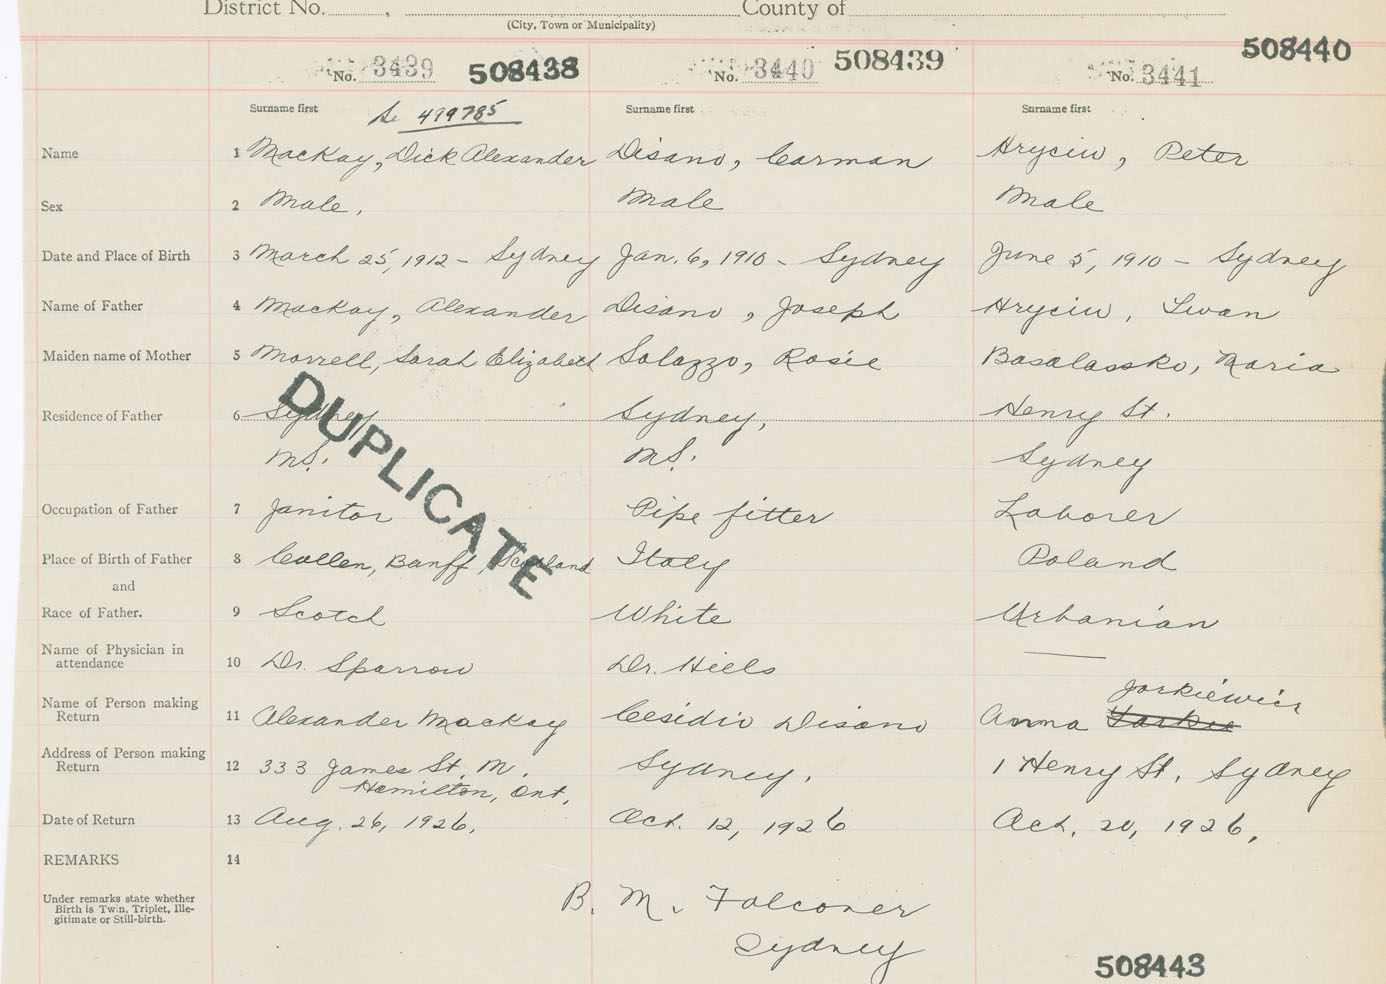 District No. , County of
(City, Town or Municipality)
No. 3439 508438 No. 3440 508439 No. 3441 508440
Surname first Surname first Surname first
See 499785
Name 1 MacKay, Dick Alexander Disano, Carman Hryciw, Peter
Sex 2 Male. Male Male
Date and Place of Birth 3 March 25, 1912 - Sydney Jan. 6, 1910 - Sydney June 5, 1910 - Sydney
Name of Father 4 MacKay, Alexander Disano, Joseph Hryciw, Iwan
Maiden name of Mother 5 Morrell, Sarah Elizabeth Solazzo, Rosie Basalassko, Maria
Residence of Father 6 Sydney Sydney, Henry St.
DUPLICATE
M.S. M.S. Sydney
Occupation of Father 7 Janitor Pipe fitter Laborer
Place of Birth of Father 8 Cullen, Banff, Scotland Italy Poland
and
Race of Father. 9 Scotch White Urbanian
Name of Physician in
attendance 10 Dr. Sparrow Dr. Hiels
Name of Person making Jarkiewicz
Return 11 Alexander MacKay Cesidio Disano Anna
Address of Person making
Return 12 333 James St. N. Sydney. 1 Henry St, Sydney
Hamilton, Ont.
Date of Return 13 Aug. 26, 1926. Oct. 12, 1926 Oct. 20, 1926,
REMARKS 14
Under remarks state whether
Birth is Twin, Triplet, Ille-
gitimate or Still-birth.
B. M. Falconer
Sydney
508443